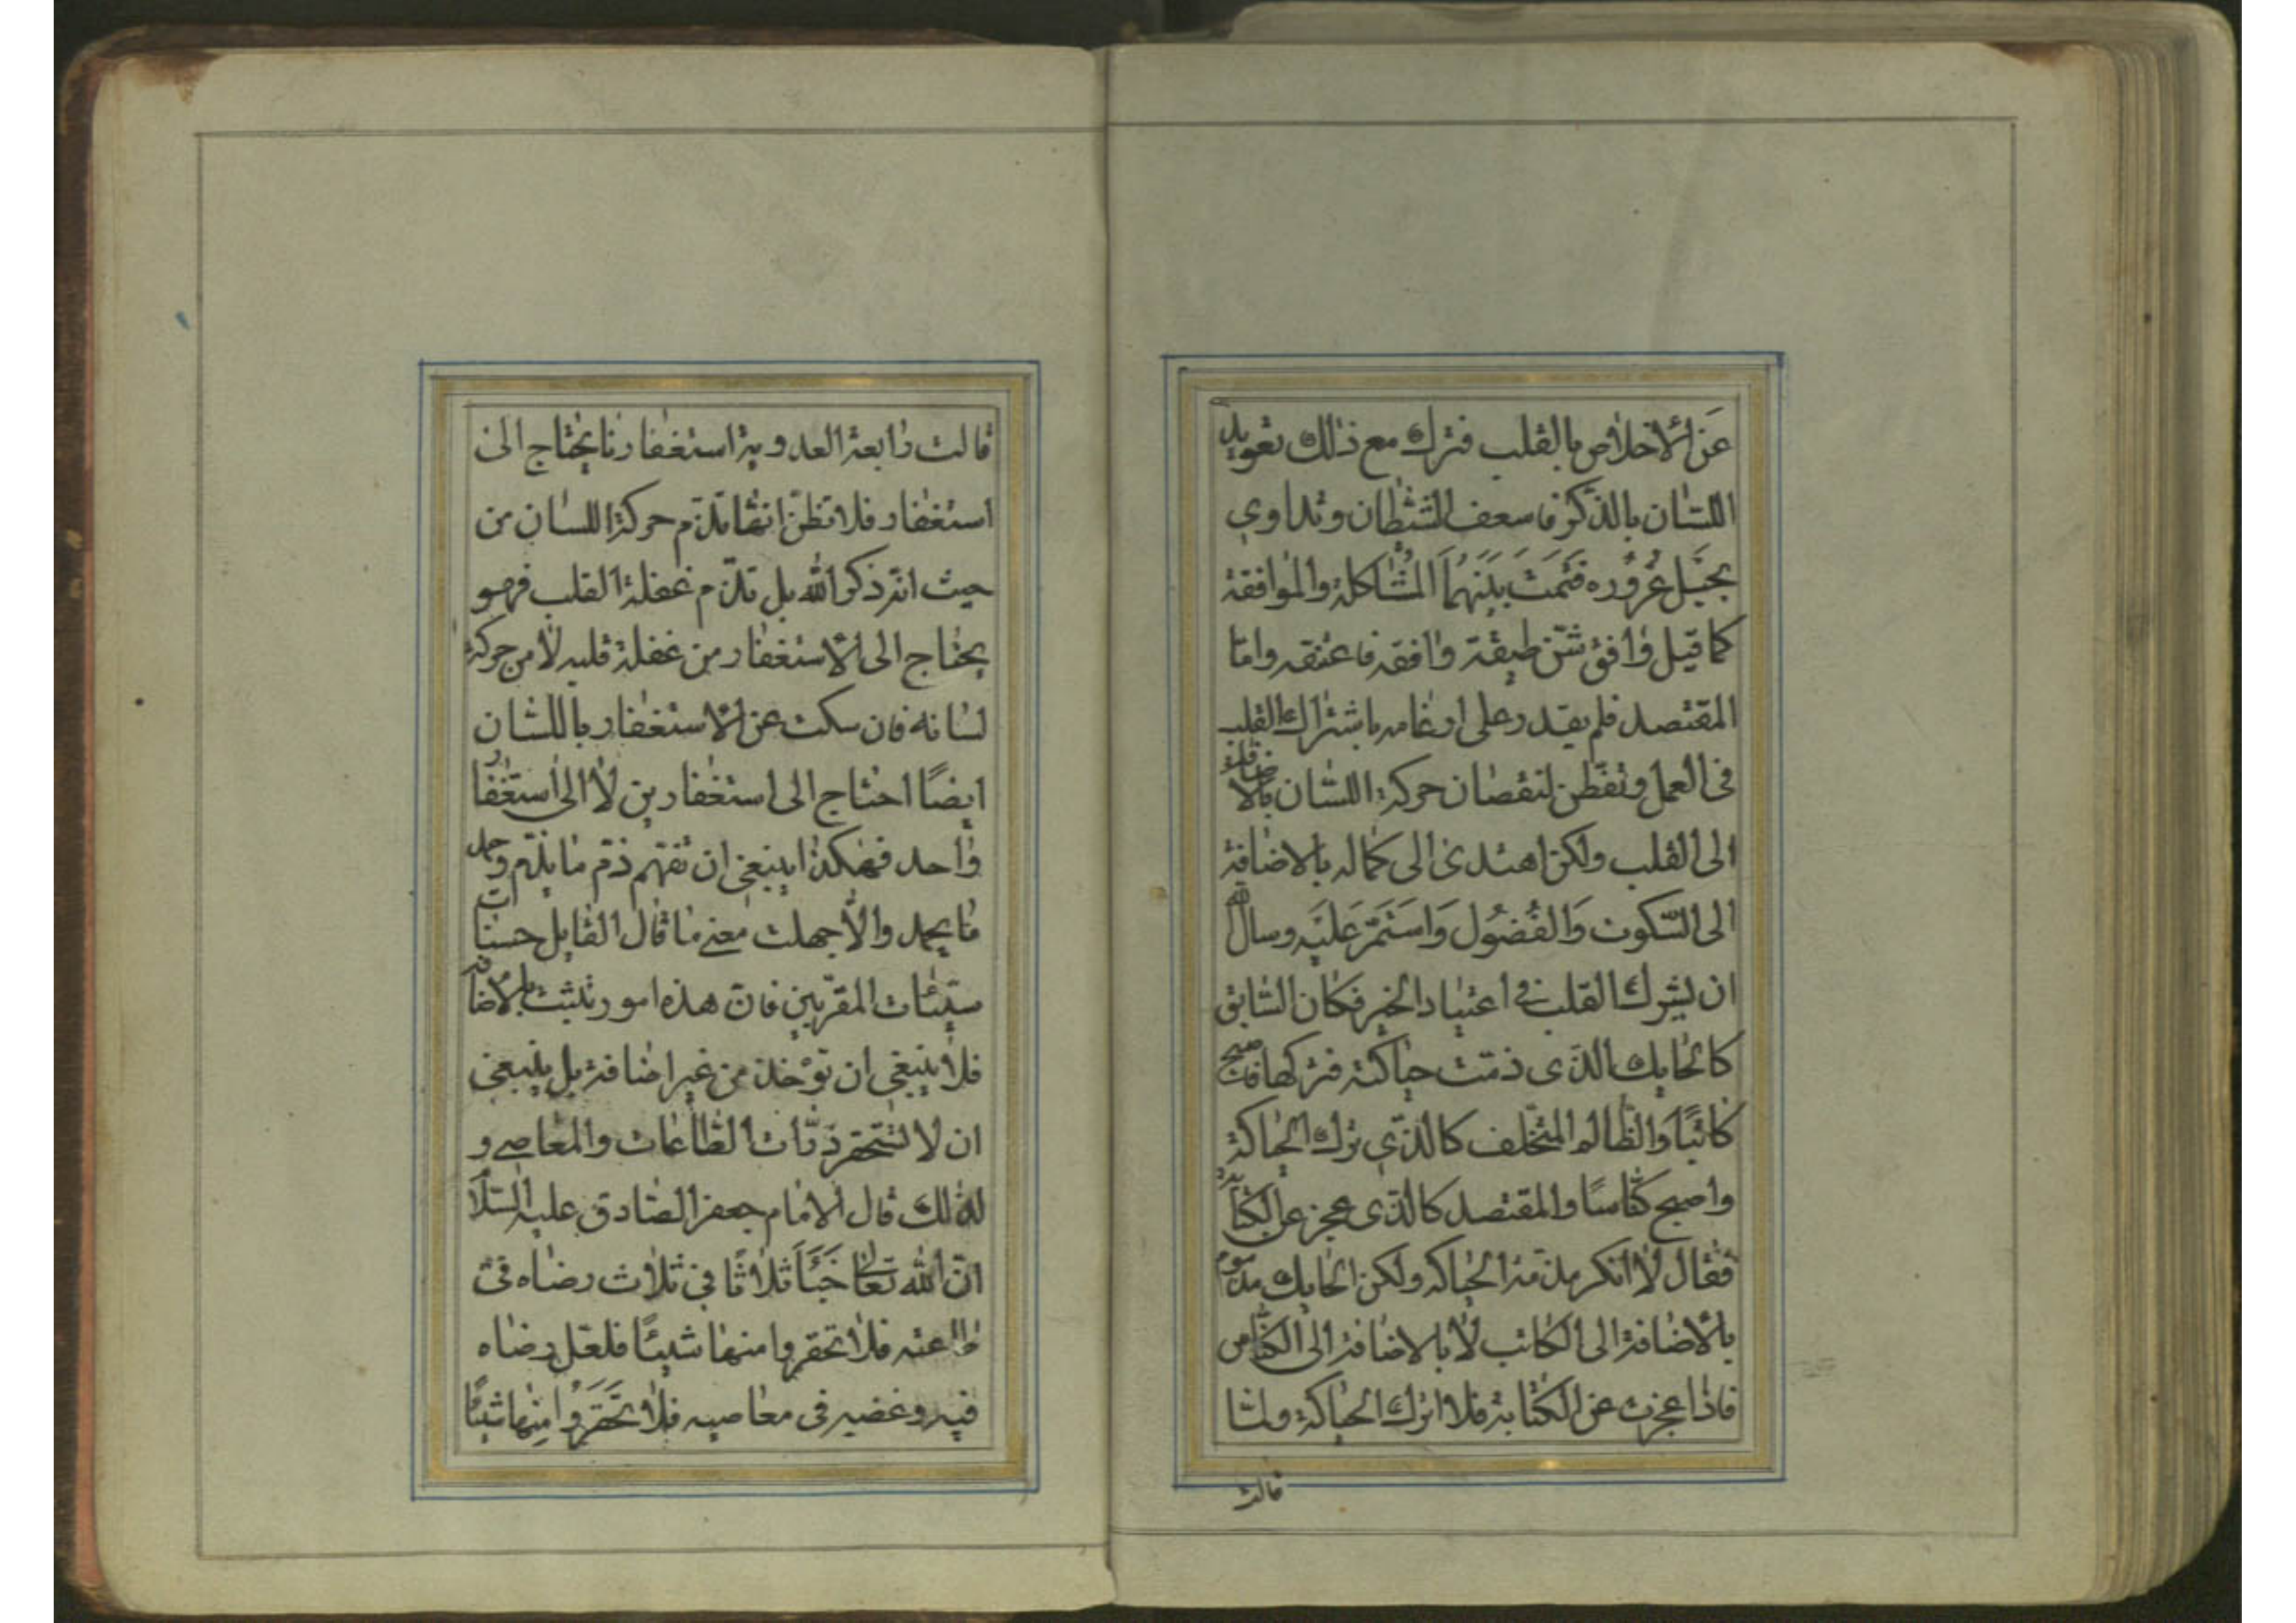 عن الاخلاص بالقلب فترك مع ذلك تعويد
اللسان بالذكر فاسعف الشيطان وتداوى
بحبل غروره فتمت بينهما المشاكلة والموافقة
كما قيل وافق شن طبقة وافقه فاعتنقه واما
المقتصد فلم يقدر على ارغامه باشتراك القلب
فى العمل وتفطن لنقصان حركة اللسان بالاضافة
الى القلب ولكن اهتدى الى كماله بالاضافة
الى السكوت والفضول واستمر عليه وسال الله
ان يشرك القلب فى اعتياد الخير فكان السابق
كالحايك الذى ذمت حياكته فتركها فاصبح
كاتبا والظالم المتخلف كالذى ترك الحياكة
واصبح كناسا والمقتصد كالذى عجز عن الكتابة
فقال لا انكر مذمة الحياكه ولكن الحايك مذموم
بالاضافة الى الكاتب لا بالاضافة الى الكناس
فاذا عجزت عن الكتابة فلا اترك الحياكة ولما
قالت
قالت رابعة العدوية استغفارنا يحتاج الى
استغفار فلا تظن انها تذم حركة اللسان من
حيث انه ذكر الله بل تذم غفلة القلب فهو
يحتاج الى الاستغفار من غفلة قلبه لا من حركة
لسانه فان سكت عن الاستغفار باللسان
ايضا احتاج الى استغفارين لا الى استغفار
واحد فهكذا ينبغى ان تفهم ذم ما يذم وحمد
ما يحمد والا جهلت معنى ما قال القايل حسنات
سيئات المقربين فان هذه امور تثبت بالاضافة
فلا ينبغى ان توخذ من غير اضافة بل ينبغى
ان لا تستحقر ذرات الطاعات والمعاصى و
لذلك قال الامام جعفر الصادق عليه السلام
ان الله تعالى خبا ثلاثا فى ثلاث رضاه فى
طاعته فلا تحقروا منها شيئا فلعل رضاه
فيه وغضبه فى معاصيه فلا تحقروا منها شيئا